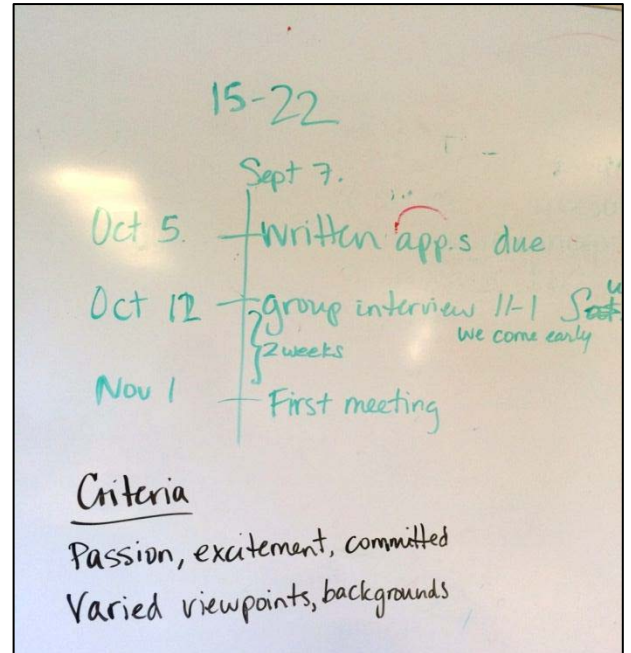 15-22
Sept 7.
Oct 5. written app.s due
Oct 12 group interview 11-1
we come early
2 weeks
Nov 1 First meeting
Criteria
Passion, excitement, committed
Varied viewpoints, backgrounds